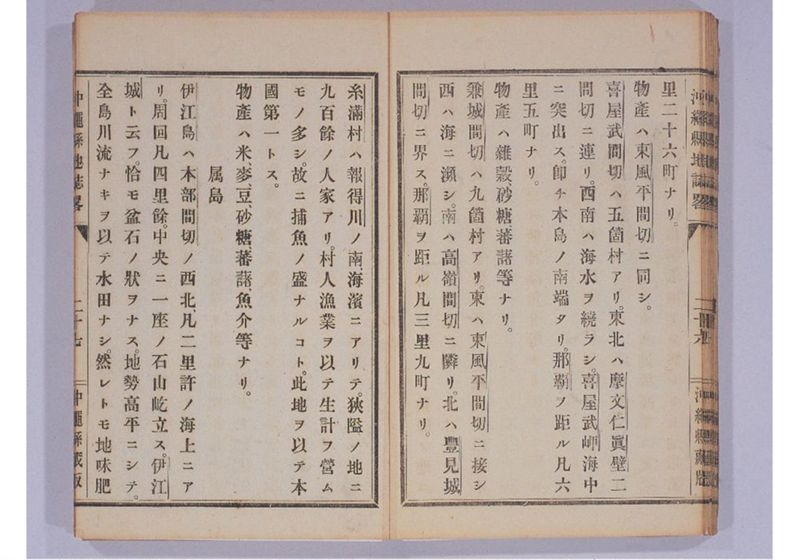 里二十六町ナリ。
物產ハ東風平間切ニ同シ。
喜屋武間切ハ五箇村アリ。東北ハ摩文仁眞壁二
間切ニ連リ。西南ハ海水ヲ繞ラシ。喜屋武岬海中
ニ突出ス。卽チ本島ノ南端タリ。那覇ヲ距ル凡六
里五町ナリ。
物產ハ雜穀砂糖蕃藷等ナリ。
兼城間切ハ九箇村アリ。東ハ東風平間切ニ接シ
西ハ海ニ瀕シ。南ハ高嶺間切ニ隣リ。北ハ豐見城
間切ニ界ス。那覇ヲ距ル凡三里九町ナリ。
沖繩縣地誌畧
二十六
沖繩縣藏版
糸滿村ハ報得川ノ南海濱ニアリテ。狹隘ノ地ニ
九百餘ノ人家アリ。村人漁業ヲ以テ生計ヲ營ム
モノ多シ。故ニ捕魚ノ盛ナルコト。此地ヲ以テ本
國第一トス。
物產ハ米麥豆砂糖蕃藷魚介等ナリ。
属島
伊江島ハ本部間切ノ西北凡二里許ノ海上ニア
リ。周回凡四里餘。中央ニ一座ノ石山屹立ス。伊江
城ト云フ。恰モ盆石ノ狀ヲナス。地勢高平ニシテ。
全島川流ナキヲ以テ水田ナシ。然レトモ地味肥
沖繩縣地誌畧
二十七
沖繩縣藏版